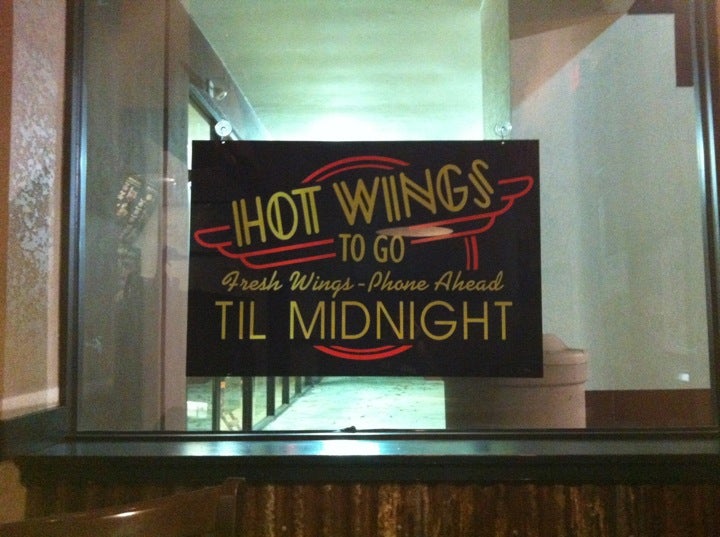 HOT WINGS
TO GO
Fresh Wings - Phone Ahead
TIL MIDNIGHT